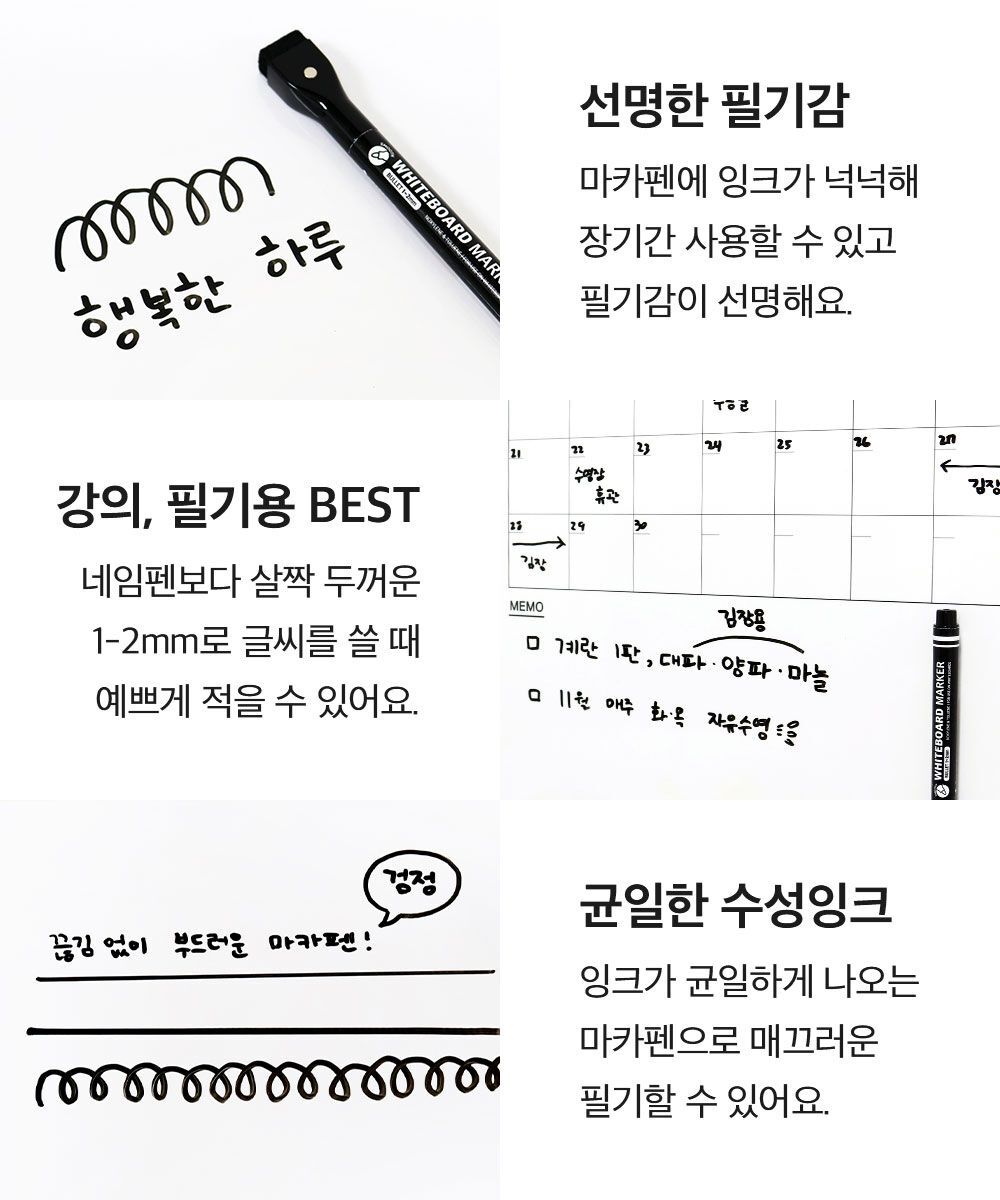 행복한 하루
WHITEBOARD MARK
BULLET 1-2mm
선명한 필기감
마카펜에 잉크가 넉넉해
장기간 사용할 수 있고
필기감이 선명해요.
강의, 필기용 BEST
네임펜보다 살짝 두꺼운
1-2mm로 글씨를 쓸 때
예쁘게 적을 수 있어요.
21 22 23 24 25 26 27
수영장
휴관
김장
28 29 30
김장
MEMO
김장용
계란 1판, 대파·양파·마늘
11월 매주 화·목 자유수영
WHITEBOARD MARKER
검정
끊김 없이 부드러운 마카펜!
균일한 수성잉크
잉크가 균일하게 나오는
마카펜으로 매끄러운
필기할 수 있어요.